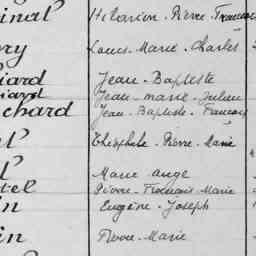 inal Hilarion - Pierre - Francois
ry Louis - Marie - Charles
iard Jean - Baptiste
iard Jean - Marie - Julien
chard Jean - Baptiste - Francois
l Théophile - Pierre - Marie
l Marie Ange
tel Pierre - Francois - Marie
in Eugène - Joseph
in Pierre - Marie